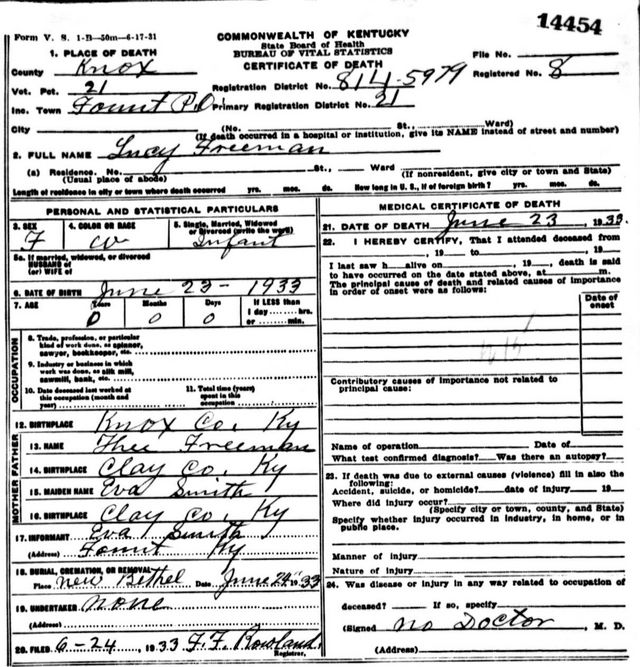 14454
Form V. S. 1-B—50m—6-17-31
COMMONWEALTH OF KENTUCKY
State Board of Health
BUREAU OF VITAL STATISTICS
CERTIFICATE OF DEATH
1. PLACE OF DEATH
County Knox
File No.
Registered No. 8
Vot. Pct. 21
Registration District No. 814-5979
Inc. Town Fount P.O
Primary Registration District No. 21
City (No. St., Ward)
(If death occurred in a hospital or institution, give its NAME instead of street and number)
2. FULL NAME Lucy Freeman
(a) Residence. No. St., Ward
(Usual place of abode) (If nonresident, give city or town and State)
Length of residence in city or town where death occurred yrs. mos. ds. How long in U. S., if of foreign birth? yrs. mos. ds.
PERSONAL AND STATISTICAL PARTICULARS
3. SEX F
4. COLOR OR RACE W
5. Single, Married, Widowed or Divorced (write the word) Infant
5a. If married, widowed, or divorced
HUSBAND of
(or) WIFE of
6. DATE OF BIRTH June 23- 1933
7. AGE Years Months Days If LESS than
0 0 0 1 day hrs.
or min.
OCCUPATION
8. Trade, profession, or particular
kind of work done, as spinner,
sawyer, bookkeeper, etc.
9. Industry or business in which
work was done, as silk mill,
sawmill, bank, etc.
10. Date deceased last worked at
this occupation (month and
year)
11. Total time (years)
spent in this
occupation
12. BIRTHPLACE Knox Co. Ky
FATHER
13. NAME Thee Freeman
14. BIRTHPLACE Clay Co. Ky
MOTHER
15. MAIDEN NAME Eva Smith
16. BIRTHPLACE Clay Co. Ky
17. INFORMANT Eva Smith
(Address) Fount Ky
18. BURIAL, CREMATION, OR REMOVAL
Place New Bethel Date June 24 1933
19. UNDERTAKER none
(Address)
20. FILED 6-24, 1933 F.F. Rowland
Registrar.
MEDICAL CERTIFICATE OF DEATH
21. DATE OF DEATH June 23, 1933.
22. I HEREBY CERTIFY, That I attended deceased from
, 19 to , 19
I last saw h alive on , 19 , death is said
to have occurred on the date stated above, at m.
The principal cause of death and related causes of importance
in order of onset were as follows:
Date of
onset
Contributory causes of importance not related to
principal cause:
Name of operation Date of
What test confirmed diagnosis? Was there an autopsy?
23. If death was due to external causes (violence) fill in also the
following:
Accident, suicide, or homicide? date of injury , 19
Where did injury occur?
(Specify city or town, county, and State)
Specify whether injury occurred in industry, in home, or in
public place.
Manner of injury
Nature of injury
24. Was disease or injury in any way related to occupation of
deceased? If so, specify
(Signed No Doctor , M. D.
(Address)